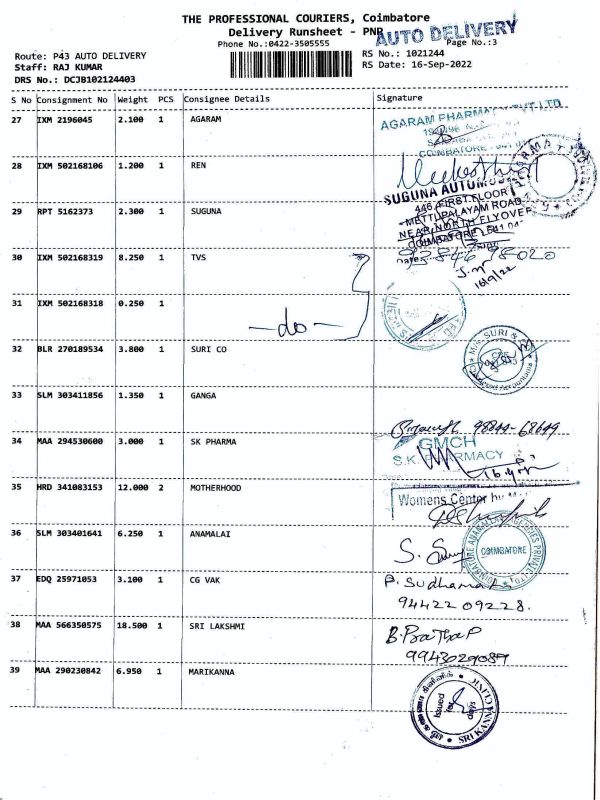 THE PROFESSIONAL COURIERS, Coimbatore
Delivery Runsheet - PNP
AUTO DELIVERY
Phone No.:0422-3505555
Page No.:3
Route: P43 AUTO DELIVERY
RS No.: 1021244
Staff: RAJ KUMAR
RS Date: 16-Sep-2022
DRS No.: DCJB102124403
S No Consignment No Weight PCS Consignee Details Signature
27 IXM 2196045 2.100 1 AGARAM
AGARAM PHARMA PVT LTD
COIMBATORE
28 IXM 502168106 1.200 1 REN
29 RPT 5162373 2.300 1 SUGUNA
SUGUNA AUTOMO
446, FIRST FLOOR
METTUPALAYAM ROAD
NEAR NORTH FLYOVER
COIMBATORE - 641 04
30 IXM 502168319 8.250 1 TVS
16/9/22
31 IXM 502168318 0.250 1
-do-
32 BLR 270189534 3.800 1 SURI CO
M/s. SURI &
33 SLM 303411856 1.350 1 GANGA
98844-68649
34 MAA 294530600 3.000 1 SK PHARMA
GMCH
S.K. PHARMACY
35 HRD 341083153 12.000 2 MOTHERHOOD
Womens Center by
36 SLM 303401641 6.250 1 ANAMALAI
COIMBATORE
37 EDQ 25971053 3.100 1 CG VAK
P. Sudhama
94422 09228.
38 MAA 566350575 18.500 1 SRI LAKSHMI
B. Prathap
9943029089
39 MAA 290230842 6.950 1 MARIKANNA
Issued
for
days
SRI KANNA